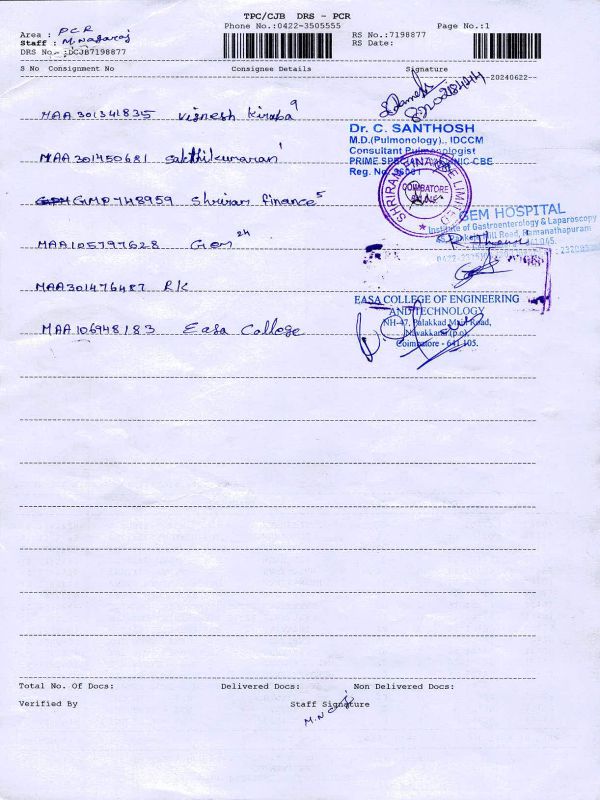 TPC/CJB DRS - PCR
Phone No.:0422-3505555
Page No.:1
Area : PCR
RS No.:7198877
Staff : M.Nagaraj
RS Date:
DRS No.:DCJB7198877
S No Consignment No Consignee Details Signature
20240622
MAA301341835 Vignesh Kiruba 9
Dr. C. SANTHOSH
M.D.(Pulmonology)., IDCCM
Consultant Pulmonologist
MAA301450681 Sakthikumaran 1
PRIME CBE
Reg. No.
SHRIRAM FINANCE LIMITED
COIMBATORE
GMP748959 Shriram finance 5
GEM HOSPITAL
Institute of Gastroenterology & Laparoscopy
Road, Ramanathapuram
MAA105797628 Gem 24
MAA301476487 RK
EASA COLLEGE OF ENGINEERING
AND TECHNOLOGY
NH-47, Palakkad Main Road,
MAA106948183 Easa College
Navakkarai (p.o),
Coimbatore - 641 105.
Total No. Of Docs: Delivered Docs: Non Delivered Docs:
Verified By Staff Signature